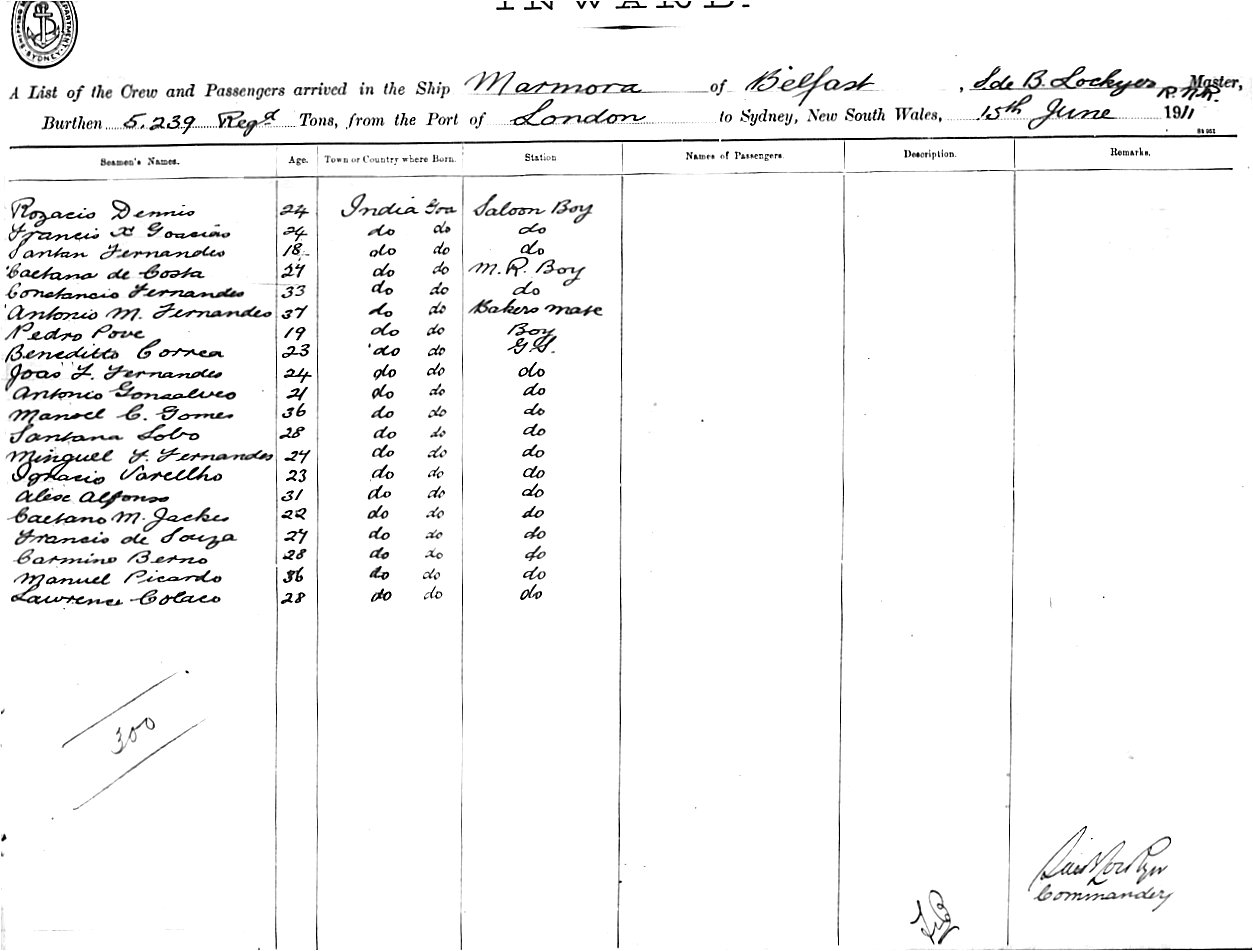 INWARD.
SYDNEY
A List of the Crew and Passengers arrived in the Ship Marmora of Belfast, I de B. Lockyer R.N.R. Master,
Burthen 5,239 Regd Tons, from the Port of London to Sydney, New South Wales, 15th June 1911
Seamen's Names. Age. Town or Country where Born. Station Names of Passengers. Description. Remarks.
Rozacio Dennis 24 India Goa Saloon Boy
Francis X Goacias 24 do do do
Santan Fernandes 18 do do do
Caetana de Costa 27 do do M.R. Boy
Constancio Fernandes 33 do do do
Antonio M. Fernandes 37 do do Bakers mate
Pedro Pove 19 do do Boy
Beneditto Correa 23 do do G.S.
Joas F. Fernandes 24 do do do
Antonio Gonsalves 21 do do do
Manoel C. Gomes 36 do do do
Santana Lobo 28 do do do
Minguel F. Fernandes 27 do do do
Ignacio Varellho 23 do do do
Alex Alfonso 31 do do do
Caetano M. Jackes 22 do do do
Francis de Souza 27 do do do
Carmino Berno 28 do do do
Manuel Picardo 36 do do do
Lawrence Colaco 28 do do do
300
Commander